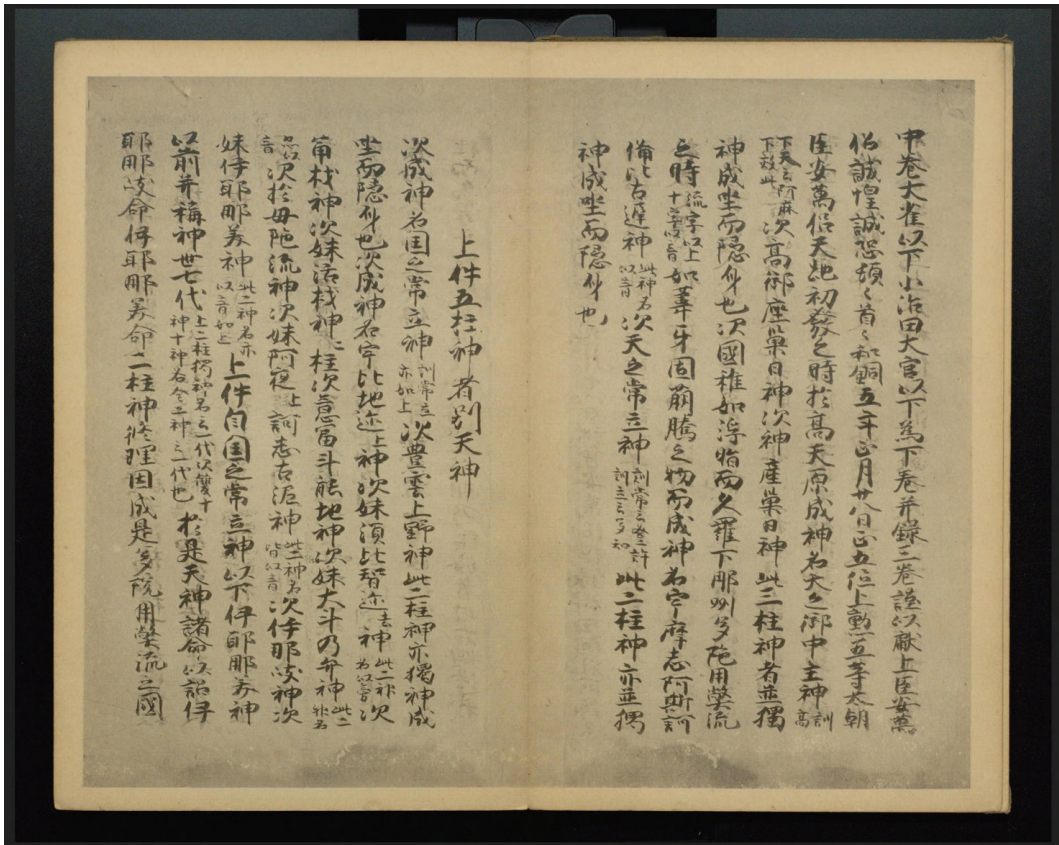 中巻大雀以下小治田大宮以下為下巻并録三巻謹以献上臣安萬
侶誠惶誠恐頓〻首〻和銅五年正月廿八日正五位上勲五等太朝
臣安萬侶天地初發之時於髙天原成神名天之御中主神訓髙
下天云阿麻下效此次髙御座巣日神次神産巣日神此三柱神者並獨
神成坐而隠身也次國稚如浮脂而久羅下那州多陁用弊流
之時流字以上十字以音如葦牙因萠騰之物而成神名宇摩志阿斯訶
備比古遅神此神名以音次天之常立神訓常云登許訓立云多知此二柱神亦並獨
神成坐而隠身也
上件五柱神者別天神
次成神名国之常立神訓常立亦如上次豊雲上野神此二柱神亦獨神成
坐而隠身也次成神名宇比地迩上神次妹湏比智迩去神此二神名以音次
角杙神次妹活杙神二柱次意冨斗能地神次妹大斗乃弁神此二神名
亦以音次於母陁流神次妹阿夜上訶志古泥神此二神名皆以音次伊耶那岐神次
妹伊耶那美神此二神名亦以音如上上件自国之常立神以下伊耶那美神
以前并稱神世七代上二柱獨神各云一代次雙十神十神各合二神云一代也於是天神諸命以詔伊
耶那岐命伊耶那美命二柱神修理因成是多陁用弊流之國